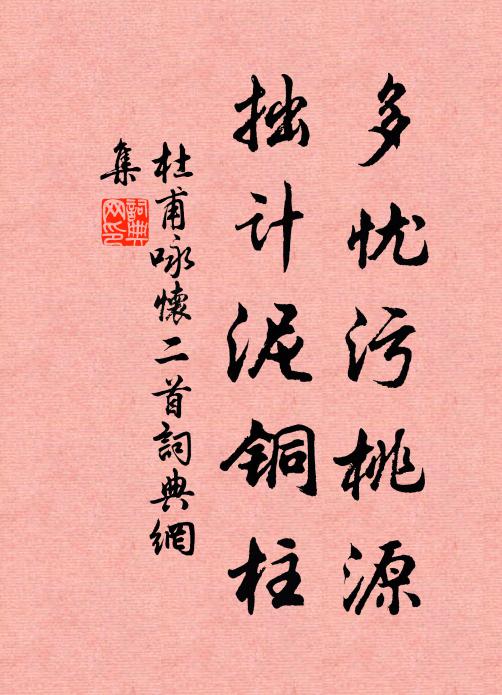 多忧污桃源
拙计泥铜柱
杜甫咏懷二首詞典網
集
詞典
网印